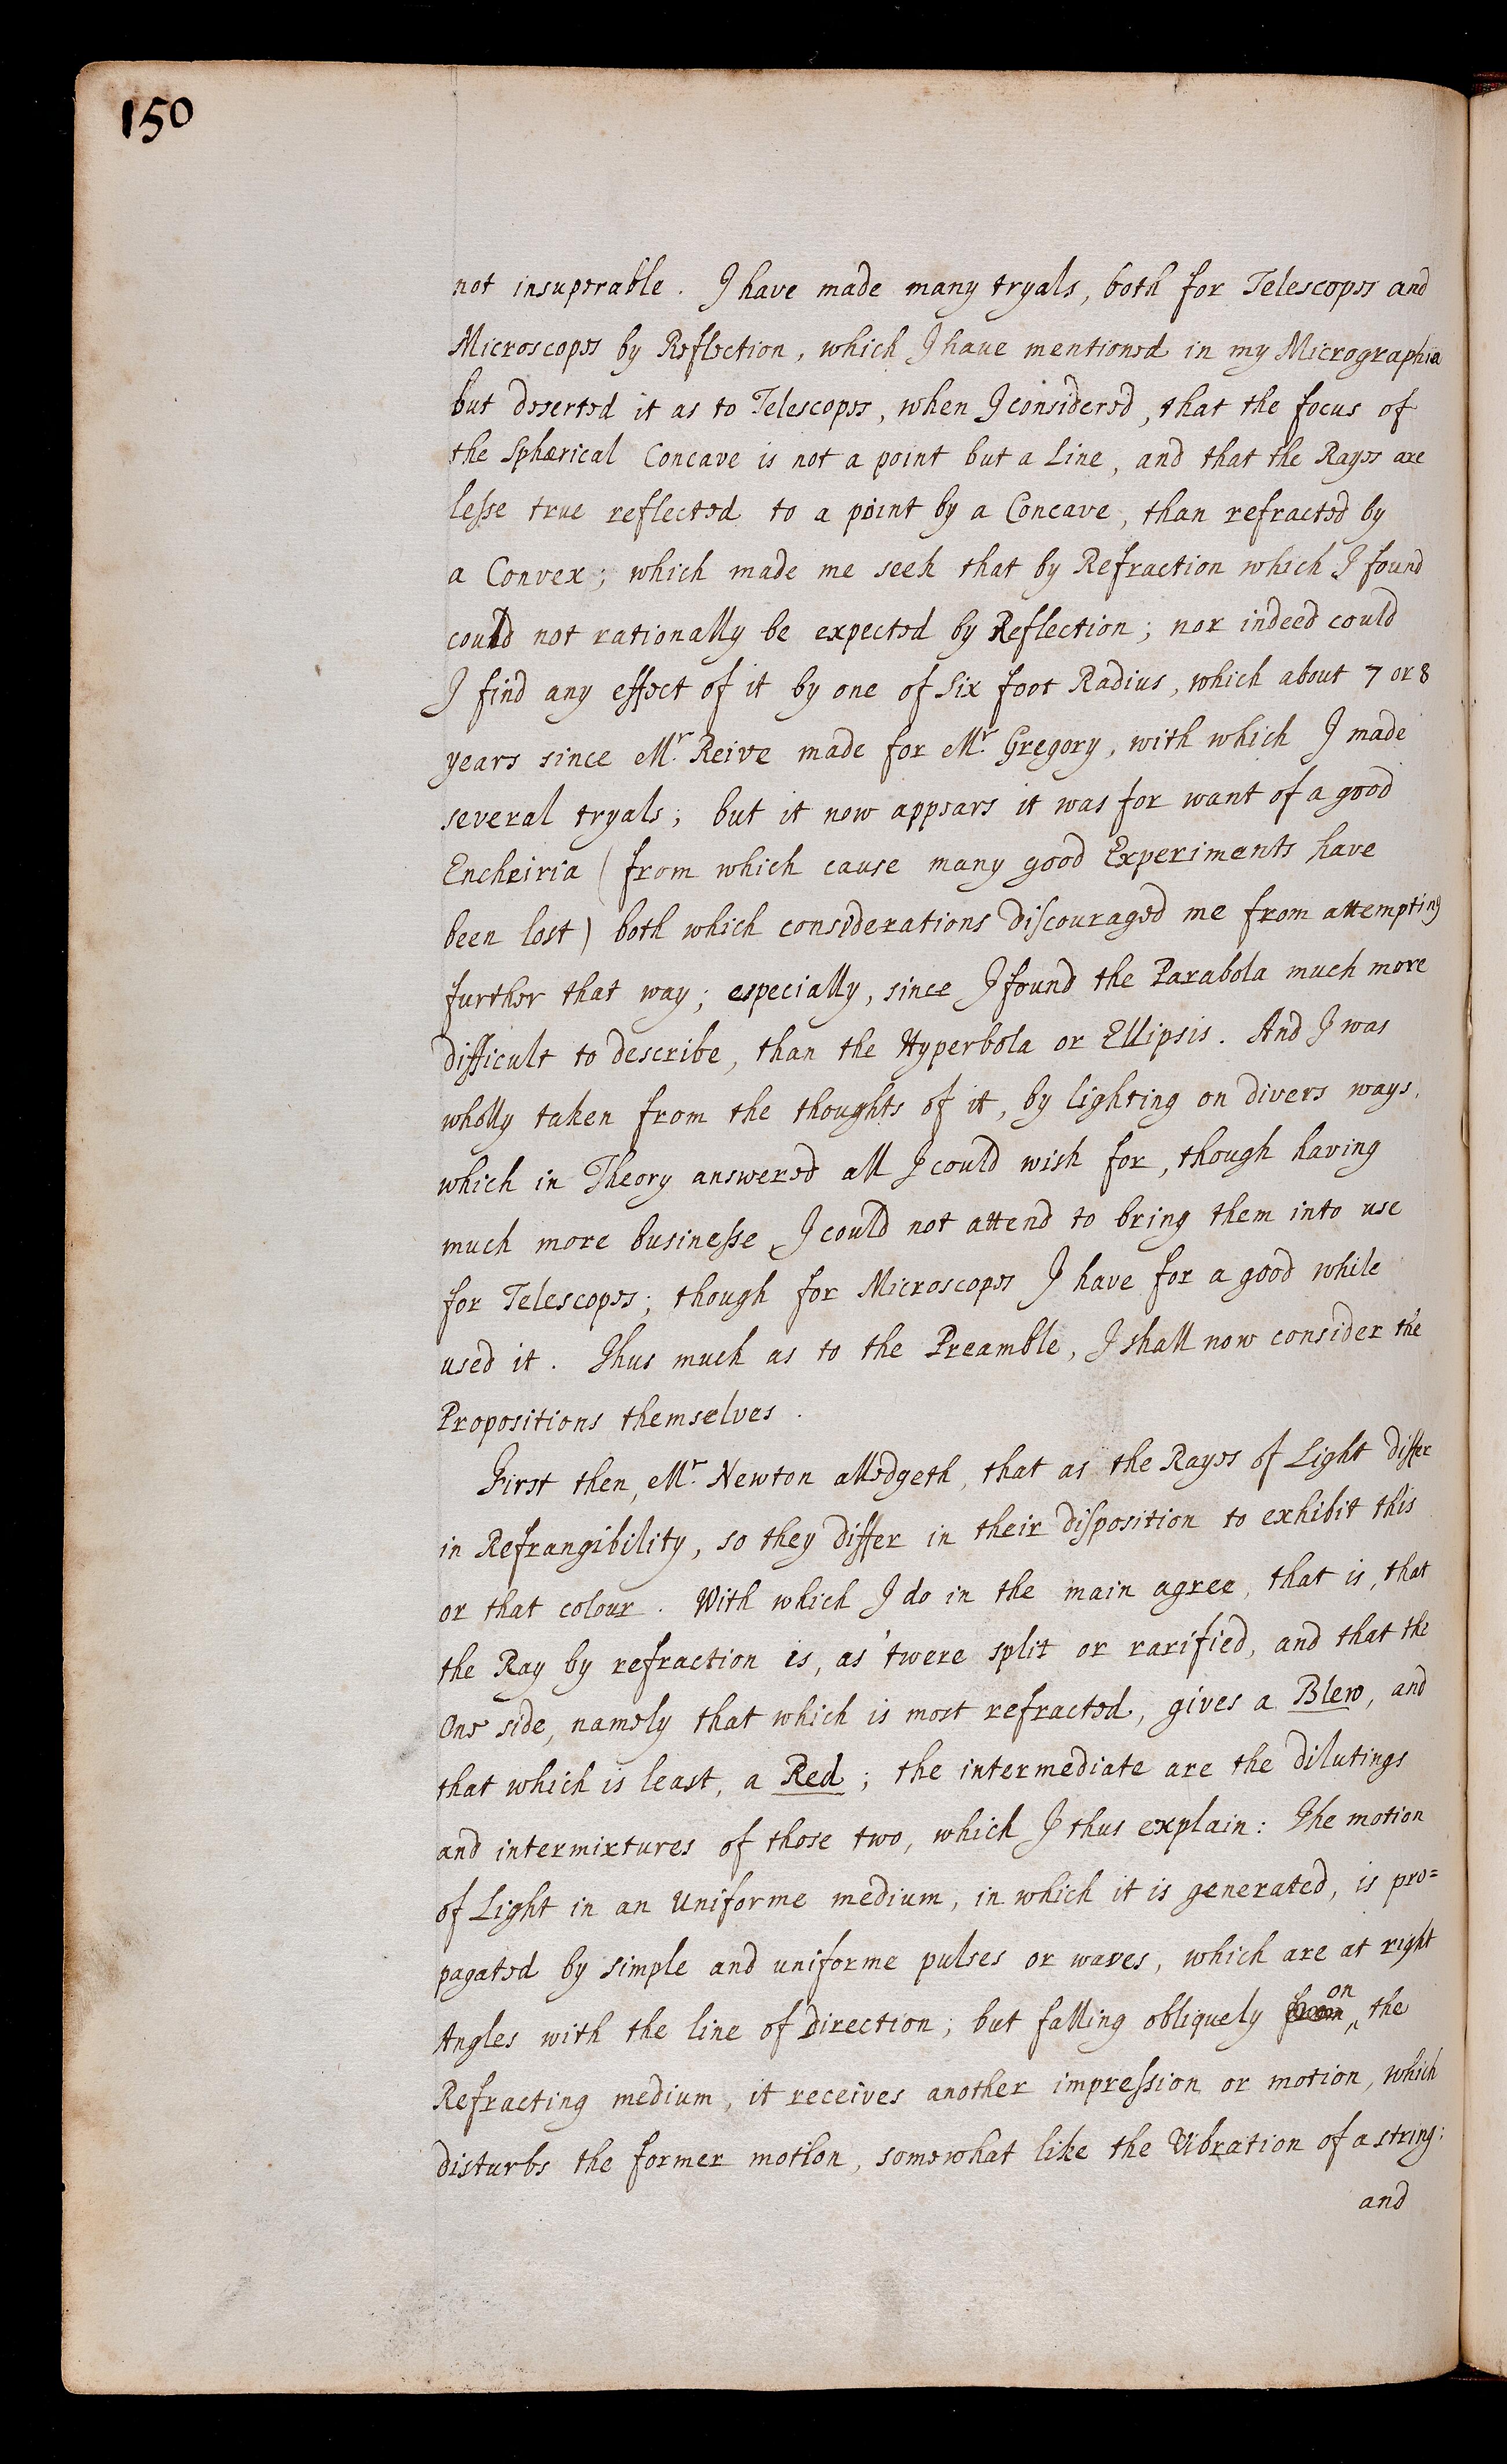 150
not insuperable. I have made many tryals, both for Telescopes and
Microscopes by Reflection, which I have mentioned in my Micrographia
but deserted it as to Telescopes, when I considered, that the focus of
the Sphærical Concave is not a point but a Line, and that the Rayes are
lesse true reflected to a point by a Concave, than refracted by
a Convex; which made me seek that by Refraction which I found
could not rationally be expected by Reflection; nor indeed could
I find any effect of it by one of Six foot Radius, which about 7 or 8
years since Mr. Reive made for Mr. Gregory, with which I made
several tryals; but it now appears it was for want of a good
Encheiria (from which cause many good Experiments have
been lost) both which considerations discouraged me from attempting
further that way; especially, since I found the Parabola much more
difficult to describe, than the Hyperbola or Ellipsis. And I was
wholly taken from the thoughts of it, by lighting on divers ways,
which in Theory answered all I could wish for, though having
much more businesse, I could not attend to bring them into use
for Telescopes; though for Microscopes I have for a good while
used it. Thus much as to the Preamble, I shall now consider the
Propositions themselves.
First then, Mr. Newton alledgeth, that as the Rayes of Light differ
in Refrangibility, so they differ in their disposition to exhibit this
or that colour. With which I do in the main agree, that is, that
the Ray by refraction is, as 'twere split or rarified, and that the
One side, namely that which is most refracted, gives a Blew, and
that which is least, a Red; the intermediate are the dilutings
and intermixtures of those two, which I thus explain: The motion
of Light in an Uniforme medium, in which it is generated, is pro=
pagated by simple and uniforme pulses or waves, which are at right
Angles with the line of direction; but falling obliquely from on the
Refracting medium, it receives another impression or motion, which
disturbs the former motion, somewhat like the Vibration of a string:
and